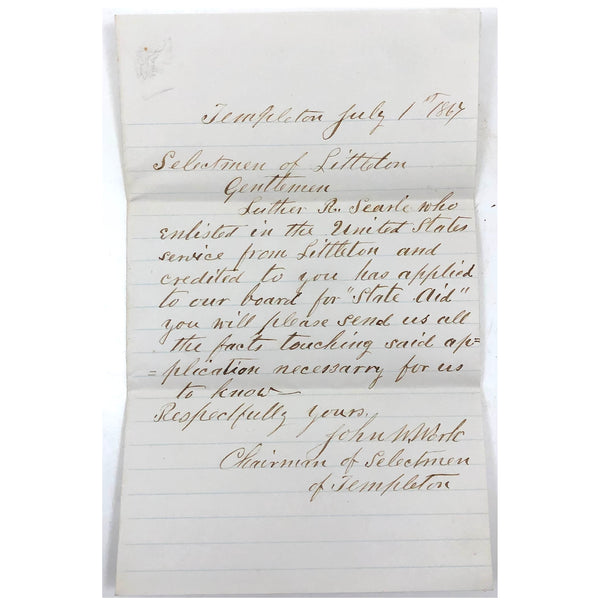 Templeton July 1st 1867
Selectmen of Littleton
Gentlemen
Luther R. Searle who
enlisted in the United States
service from Littleton and
credited to you has applied
to our board for "State Aid"
you will please send us all
the facts touching said ap=
=plication necessarry for us
to know
Respectfully yours,
John W Work
Chairman of Selectmen
of Templeton